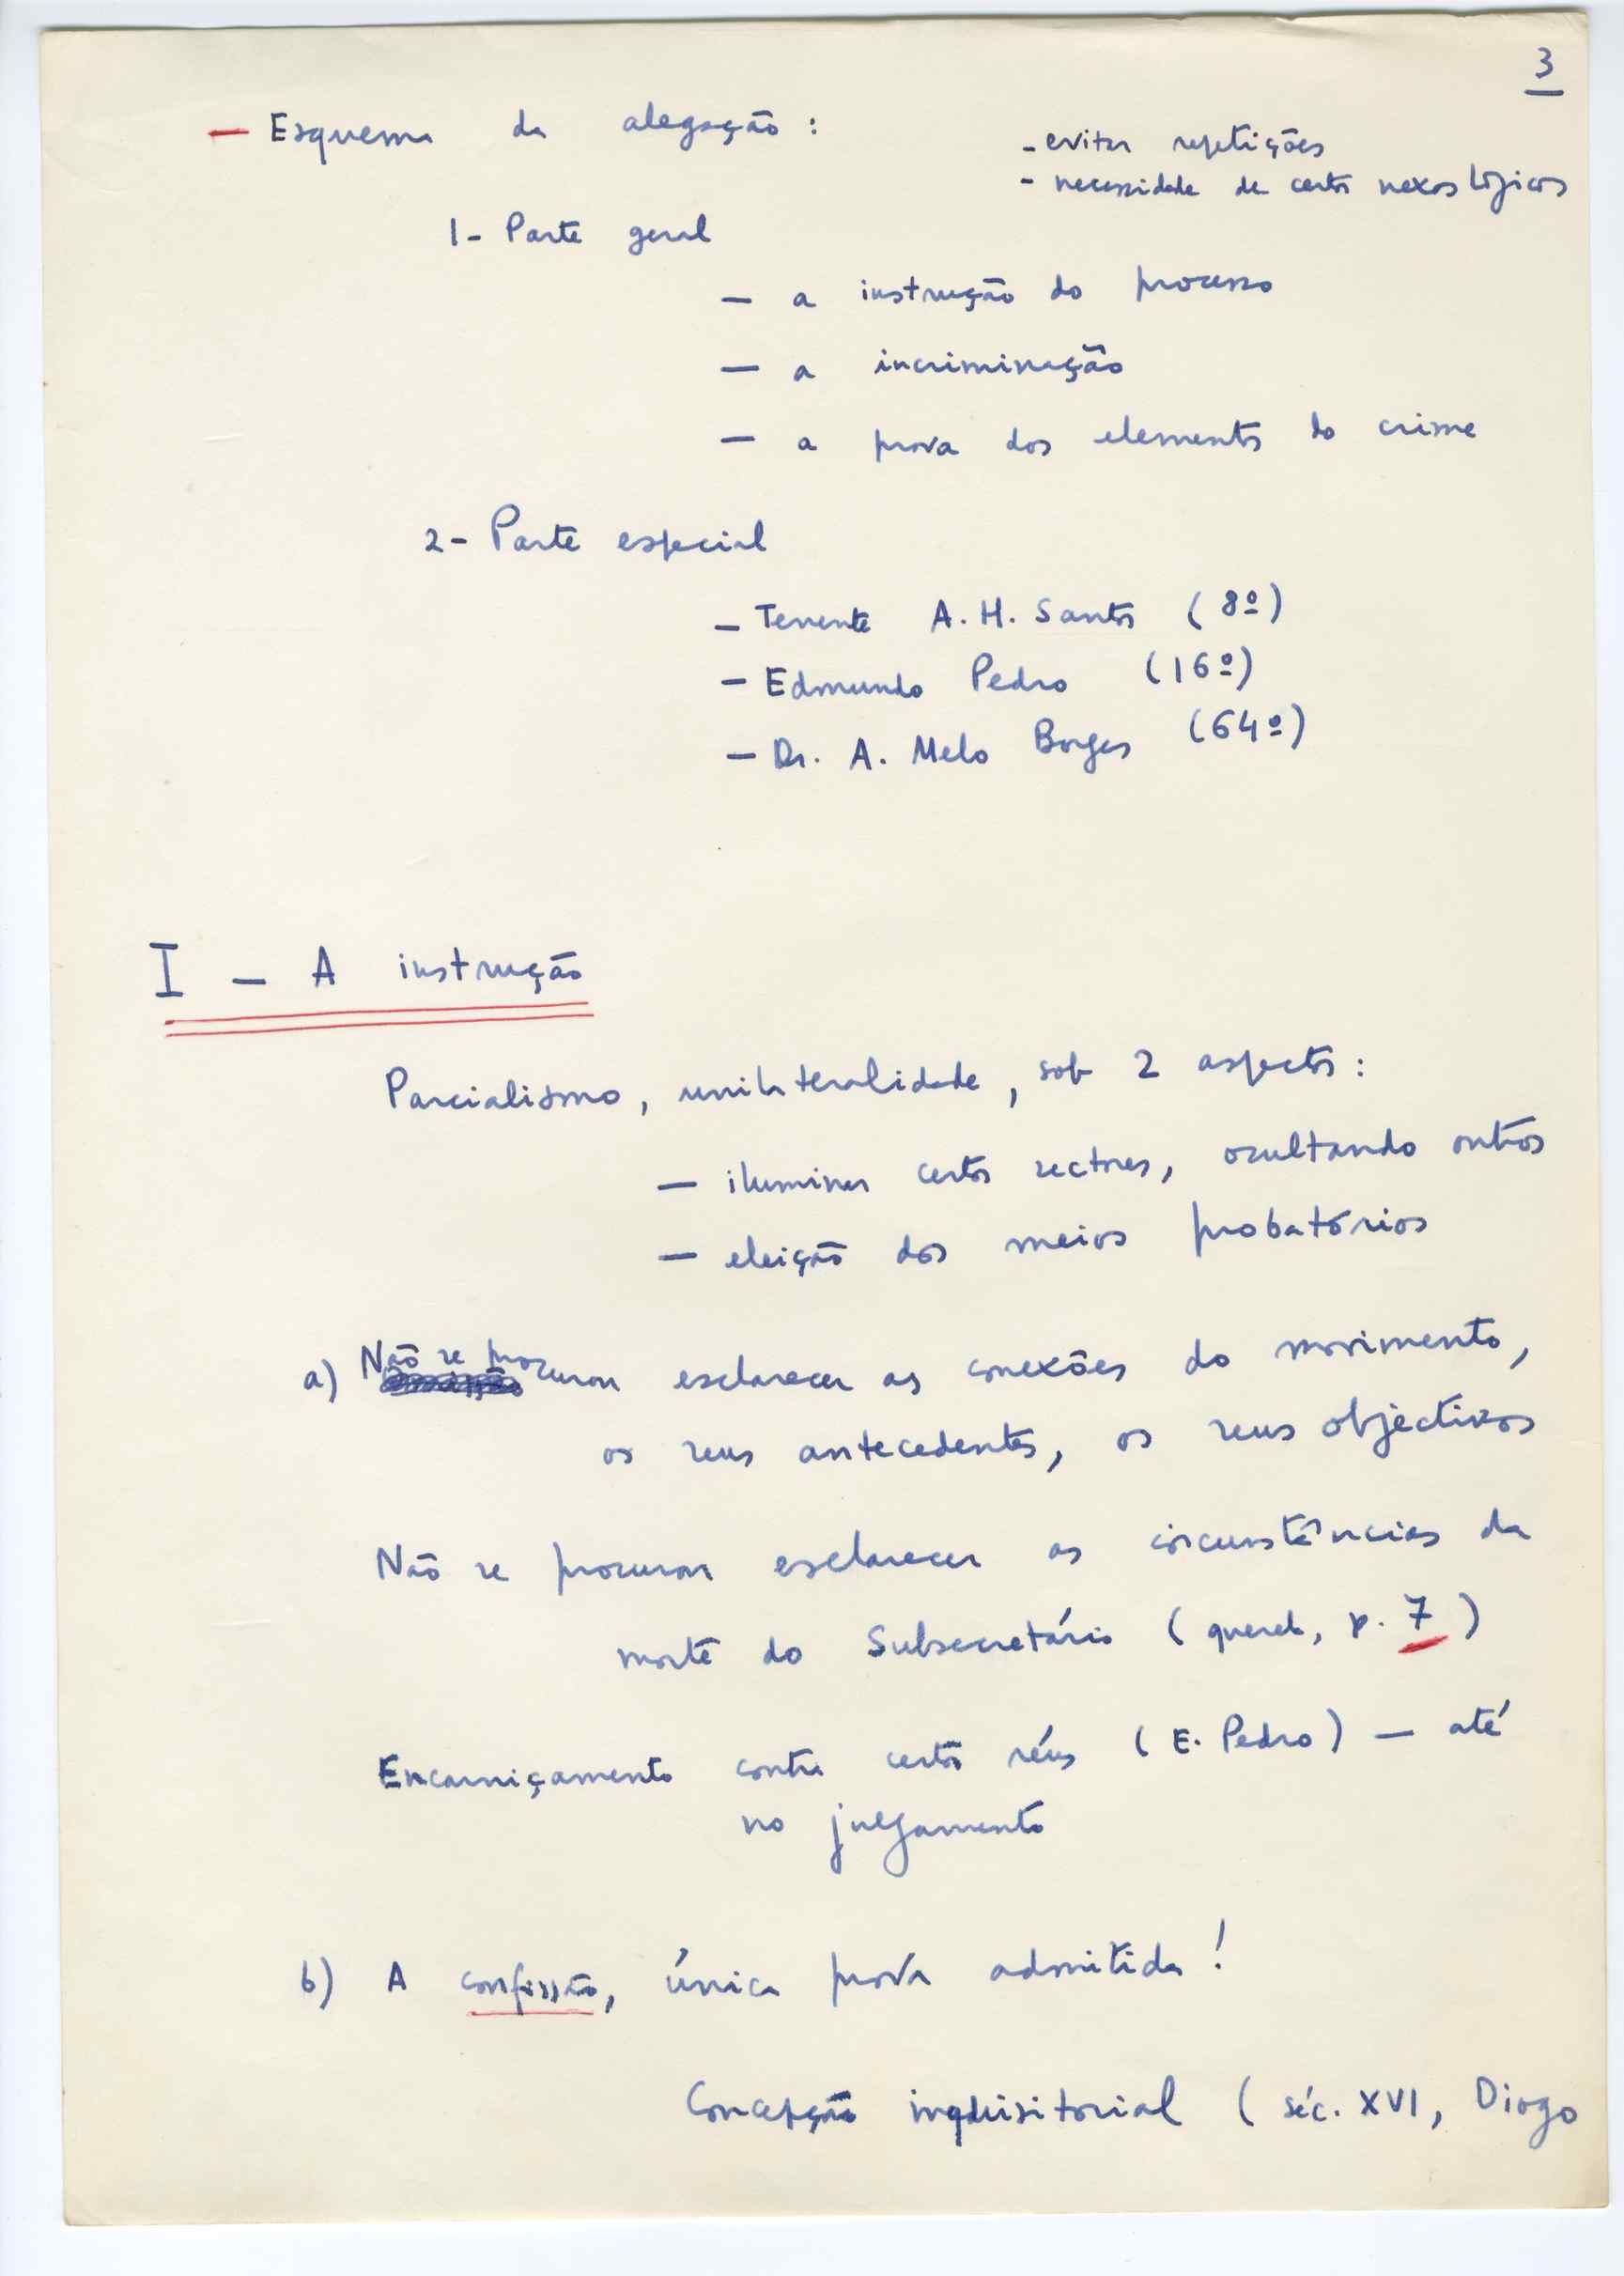 3
— Esquema da alegação :
- evitar repetições
- necessidade de certos nexos lógicos
1- Parte geral
— a instrução do processo
— a incriminação
— a prova dos elementos do crime
2- Parte especial
— Tenente A. H. Santos (8º)
— Edmundo Pedro (16º)
— Dr. A. Melo Borges (64º)
I — A instrução
Parcialismo, unilateralidade, sob 2 aspectos :
— iluminar certos sectores, ocultando outros
— eleição dos meios probatórios
a) Não se procurou esclarecer as conexões do movimento,
os seus antecedentes, os seus objectivos
Não se procurou esclarecer as circunstâncias da
morte do Subsecretário (querela, p. 7)
Encarniçamento contra certos réus (E. Pedro) — até
no julgamento
b) A confissão, única prova admitida !
Concepção inquisitorial (séc. XVI, Diogo